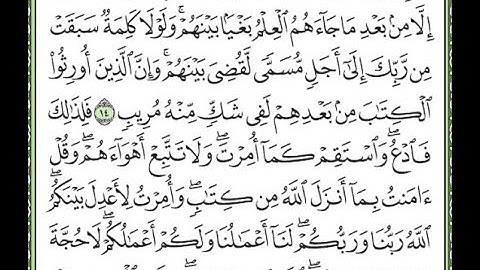 إِلَّا مِنۢ بَعْدِ مَا جَآءَهُمُ ٱلْعِلْمُ بَغْيًۢا بَيْنَهُمْ ۚ وَلَوْلَا كَلِمَةٌ سَبَقَتْ
مِن رَّبِّكَ إِلَىٰٓ أَجَلٍ مُّسَمًّى لَّقُضِىَ بَيْنَهُمْ ۚ وَإِنَّ ٱلَّذِينَ أُورِثُوا۟
ٱلْكِتَٰبَ مِنۢ بَعْدِهِمْ لَفِى شَكٍّ مِّنْهُ مُرِيبٍ ١٤ فَلِذَٰلِكَ
فَٱدْعُ ۖ وَٱسْتَقِمْ كَمَآ أُمِرْتَ ۖ وَلَا تَتَّبِعْ أَهْوَآءَهُمْ ۖ وَقُلْ
ءَامَنتُ بِمَآ أَنزَلَ ٱللَّهُ مِن كِتَٰبٍ ۖ وَأُمِرْتُ لِأَعْدِلَ بَيْنَكُمُ ۖ
ٱللَّهُ رَبُّنَا وَرَبُّكُمْ ۖ لَنَآ أَعْمَٰلُنَا وَلَكُمْ أَعْمَٰلُكُمْ ۖ لَا حُجَّةَ